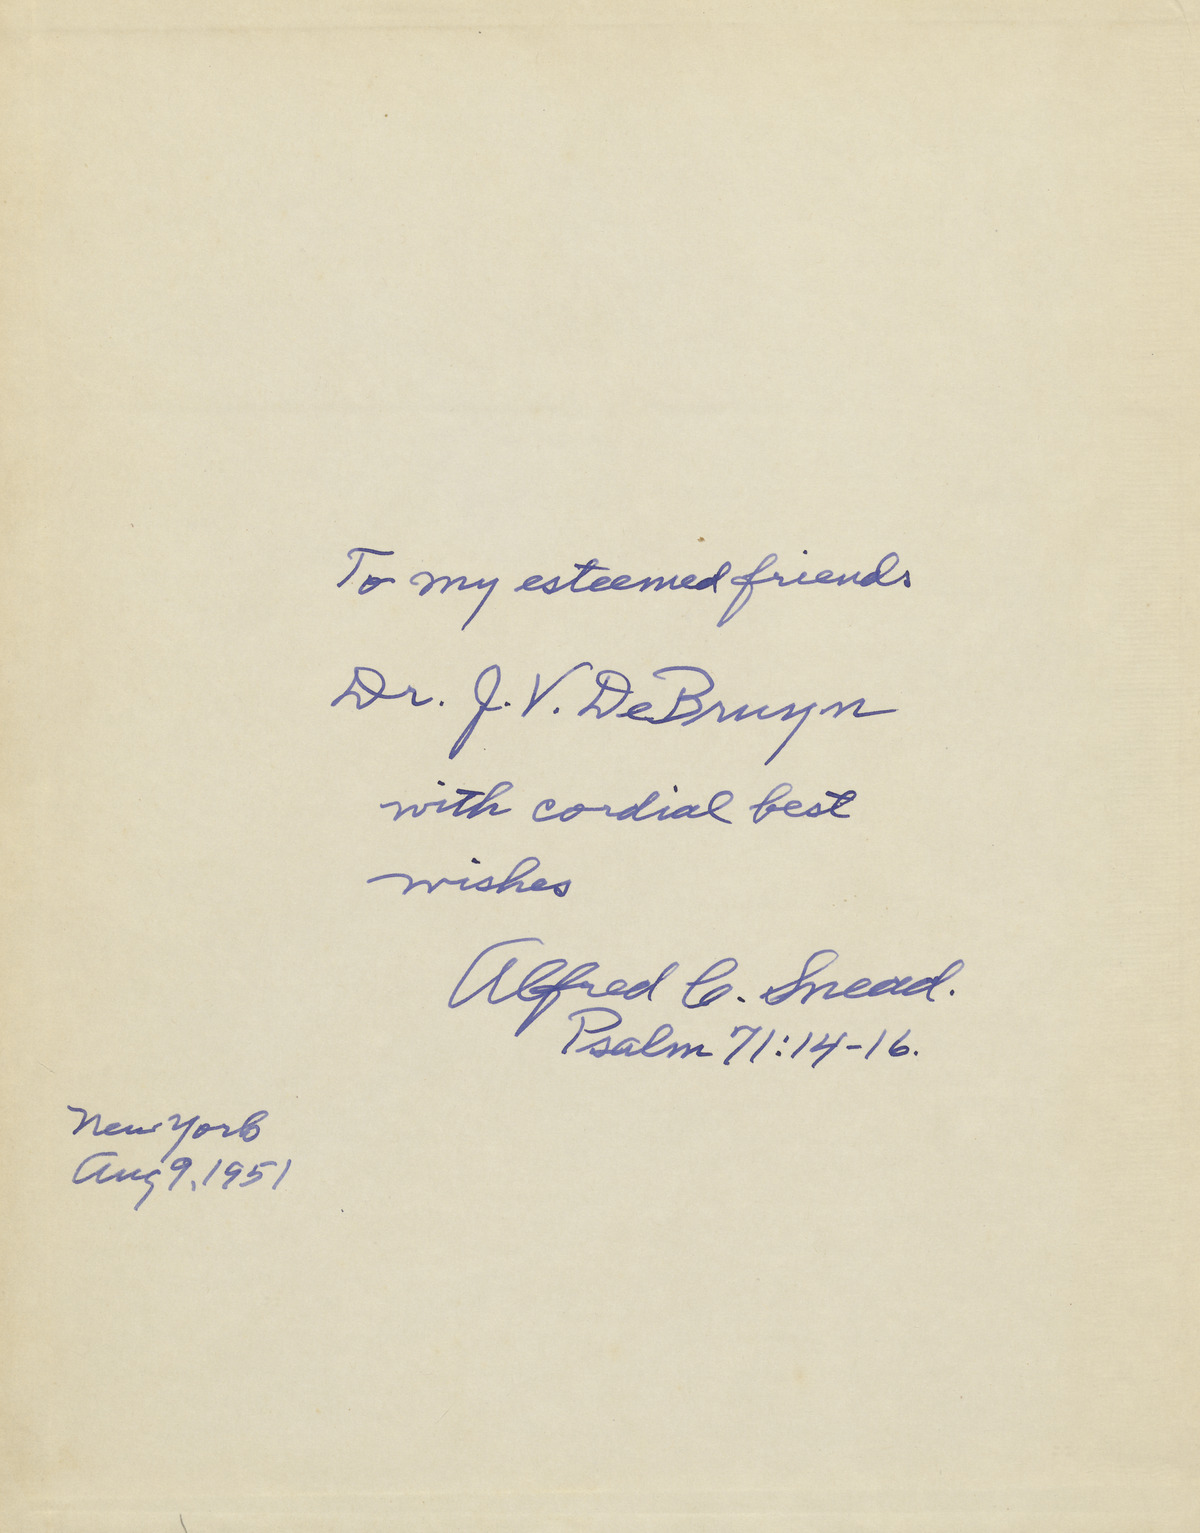 To my esteemed friends
Dr. J. V. DeBruyn
with cordial best
wishes
Alfred C. Snead.
Psalm 71:14-16.
New York
Aug 9, 1951